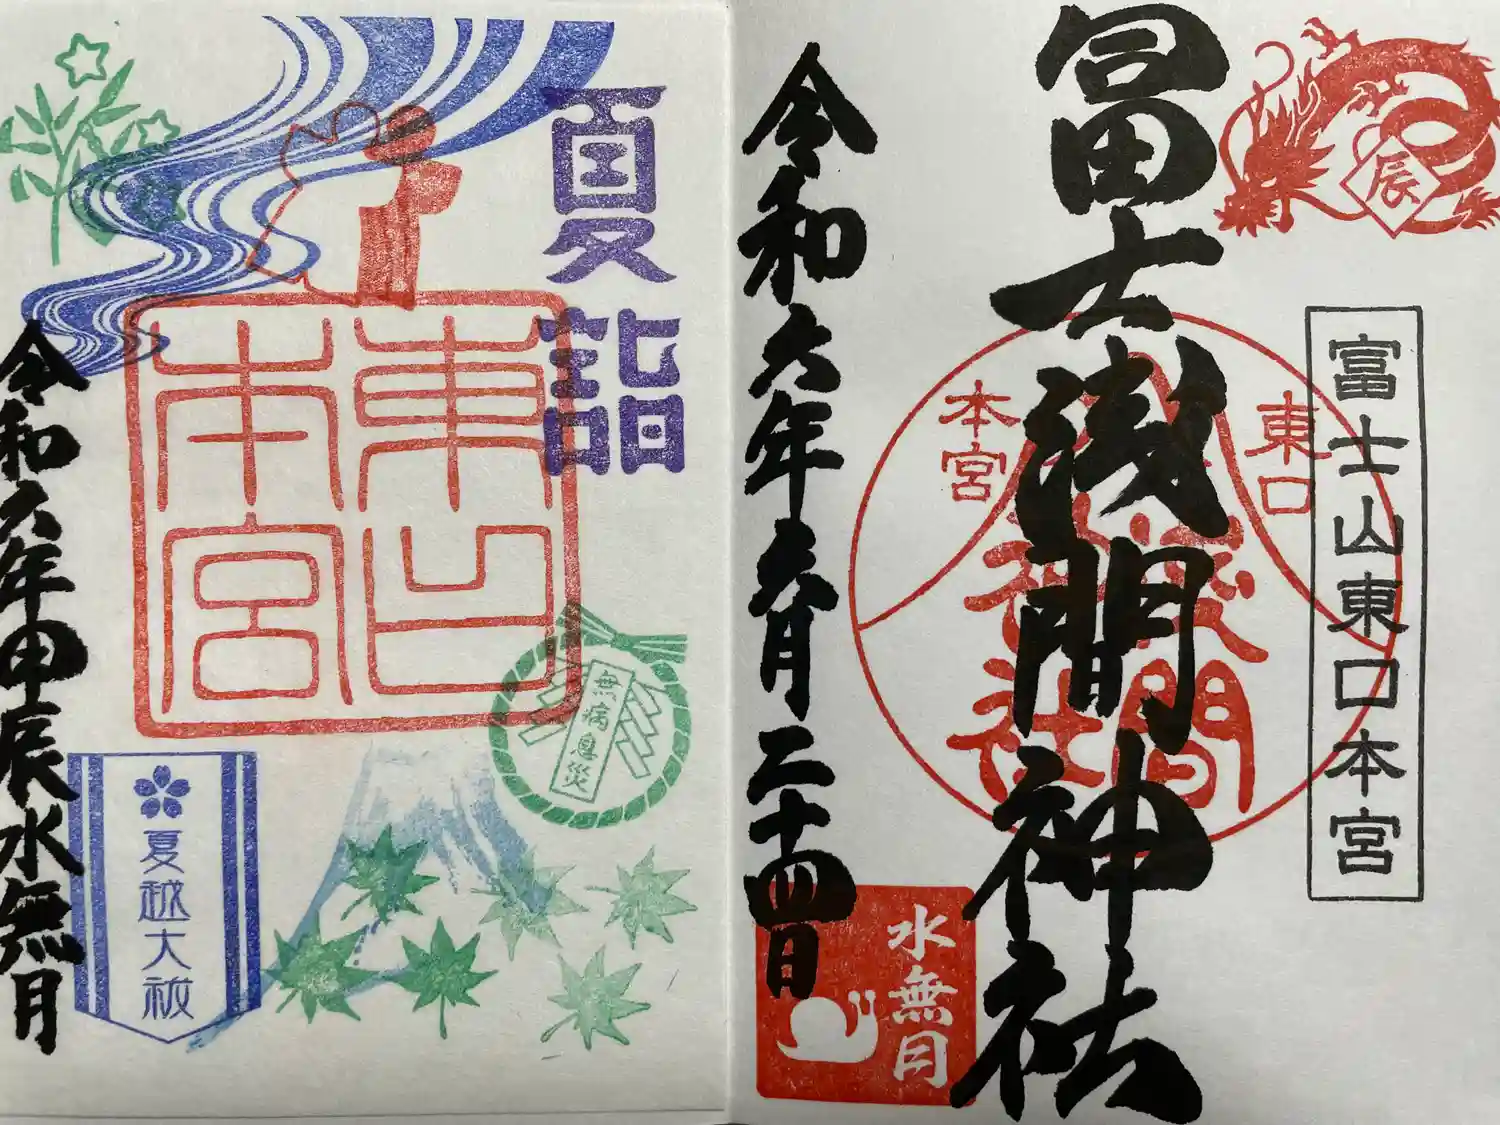 辰
冨士浅間神社
富士山東口本宮
東口
本宮
浅間
神社
令和六年六月二十四日
水無月
夏詣
東口
本宮
無病息災
夏越大祓
令和六年甲辰水無月